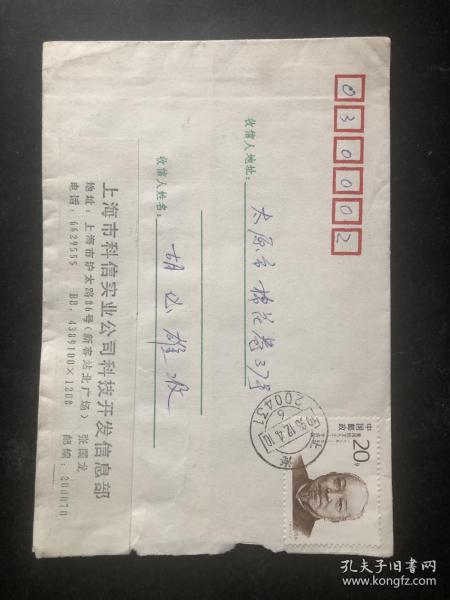 030002
收信人地址:
太原市棉花巷37号
收信人姓名:
胡 雄 收
上海市科信实业公司科技开发信息部
地址: 上海市沪太路86号(新客站北广场) 张国龙
电话: 6629555 BB: 4389100×1208 邮编: 200070
200431
上海
中国邮政
20分
孔夫子旧书网
www.kongfz.com